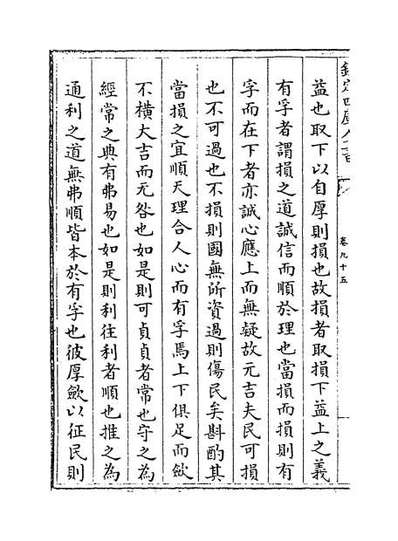 欽定四庫全書
卷九十五
益也取下以自厚則損也故損者取損下益上之義
有孚者謂損之道誠信而順於理也當損而損則有
孚而在下者亦誠心應上而無疑故元吉夫民可損
也不可過也不損則國無所資過則傷民矣斟酌其
當損之宜順天理合人心而有孚焉上下俱足而斂
不橫大吉而无咎也如是則可貞貞者常也守之為
經常之典有弗易也如是則利往利者順也推之為
通利之道無弗順皆本於有孚也彼厚斂以征民則